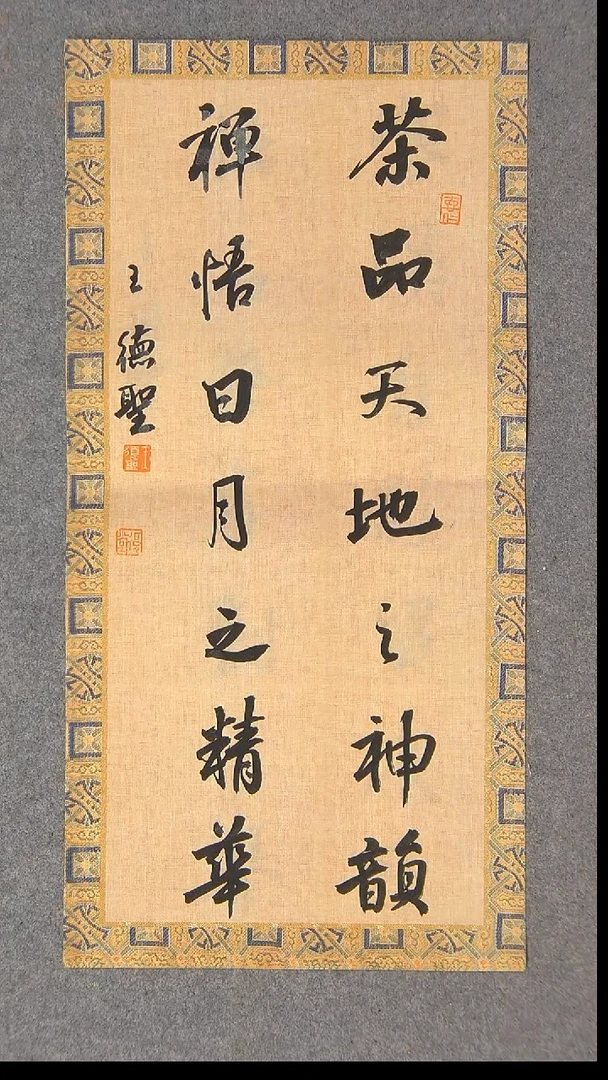 茶品天地之神韻
禅悟日月之精華
王德聖